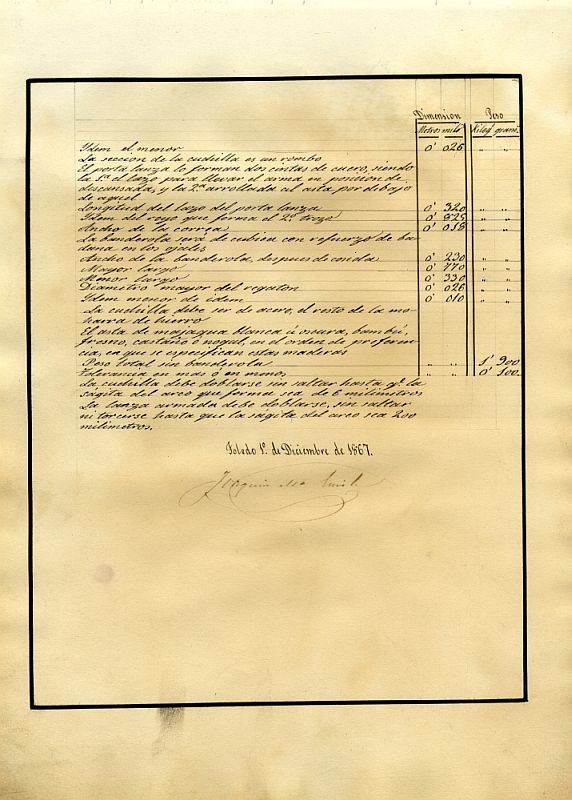 Dimension Peso
Metros mils Kilog gram.
Idem el menor 0' 026 „ „
La seccion de la cuchilla es un rombo
El porta lanza lo forman dos cintas de cuero, siendo
la 1ª el lazo para llevar el arma en posicion de
descansada, y la 2ª arrollada al asta por debajo
de aquel
Longitud del lazo del porta lanza 0' 320 „ „
Idem del rozo que forma el 2º trozo 0' 825 „ „
Ancho de la correa 0' 018 „ „
La banderola sera de cubica con refuerzo de ba-
dana en los ojales
Ancho de la banderola, despues de cosida 0' 230 „ „
Mayor largo 0' 770 „ „
Menor largo 0' 330 „ „
Diametro mayor del regaton 0' 026 „ „
Idem menor de idem 0' 010 „ „
La cuchilla debe ser de acero, el resto de la mo-
harra de hierro
El asta de majagua blanca ú oscura, bambú,
fresno, castaño ó nogal, en el orden de preferen-
cia, en que se especifican estas maderas
Peso total sin banderola „ „ 1' 900
Tolerancia en mas ó en menos „ „ 0' 100
La cuchilla debe doblarse sin saltar hasta qe. la
sagita del arco que forma sea de 6 milimetros
La lanza armada debe doblarse, sin saltar
ni torcerse hasta que la ságita del arco sea 200
milimetros.
Toledo 1º. de Diciembre de 1867.
Joaquin Ma